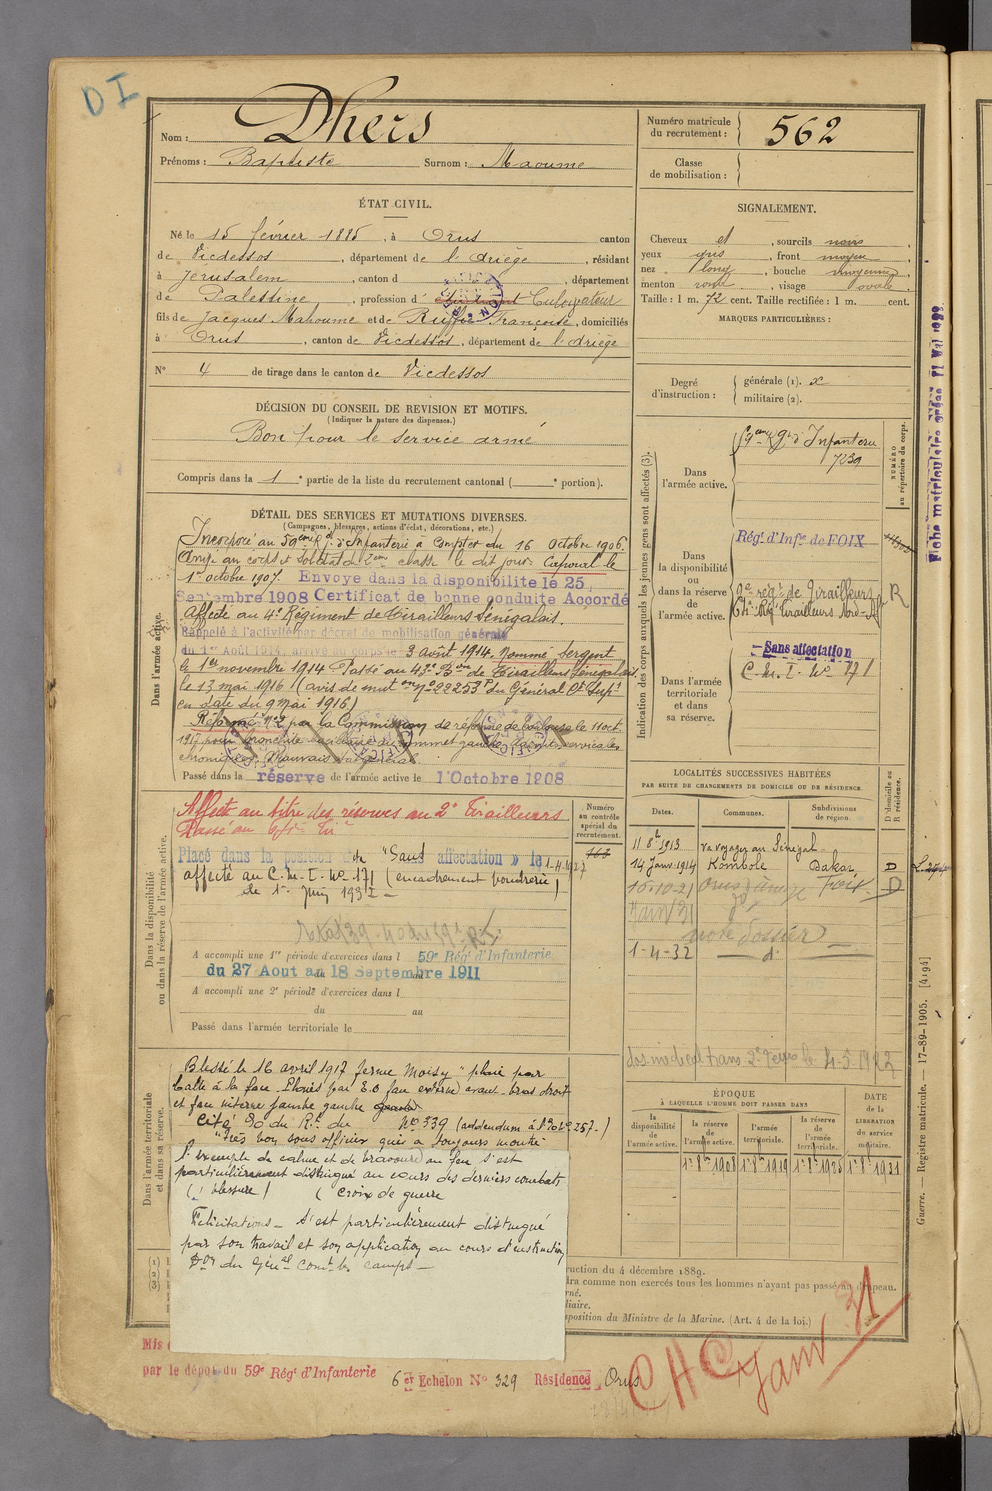 DI
Nom : Dhers
Prénoms : Baptiste Surnom : Maoume
Numéro matricule
du recrutement : 562
Classe
de mobilisation :
ÉTAT CIVIL.
Né le 15 février 1885, à Orus canton
de Vicdessos, département de l'Ariège, résidant
à Jérusalem, canton d , département
de Palestine, profession d' étudiant Cultivateur
fils de Jacques Mahoume et de Ruffié Françoise, domiciliés
à Orus, canton de Vicdessos, département de l'Ariège
N° 4 de tirage dans le canton de Vicdessos
SIGNALEMENT.
Cheveux et , sourcils noirs ,
yeux gris , front moyen ,
nez long , bouche moyenne ,
menton rond , visage ovale .
Taille : 1 m. 72 cent. Taille rectifiée : 1 m. cent.
MARQUES PARTICULIÈRES :
DÉCISION DU CONSEIL DE REVISION ET MOTIFS.
(Indiquer la nature des dispenses.)
Bon pour le service armé
Compris dans la 1e partie de la liste du recrutement cantonal ( e portion).
Degré
d'instruction :
générale (1). x
militaire (2).
DÉTAIL DES SERVICES ET MUTATIONS DIVERSES.
(Campagnes, blessures, actions d'éclat, décorations, etc.)
Dans l'armée active.
Incorporé au 59eme Rgt d'Infanterie à Compter du 16 Octobre 1906.
Arrivé au corps et soldat de 2eme classe le dit jour. Caporal le
1er octobre 1907. Envoye dans la disponibilite le 25
Septembre 1908 Certificat de bonne conduite Accordé
Affecté au 4e Régiment de Tirailleurs Sénégalais.
Rappelé à l'activité par décret de mobilisation générale
du 1er Août 1914, arrivé au corps le 3 août 1914. Nommé Sergent
le 1er novembre 1914 Passé au 43e Bon de Tirailleurs Sénégalais
le 13 mai 1916 (avis de mut on n° 22253 P du Général Ct Supr
en date du 9 Mai 1916)
Réformé N°2 par la Commission de réforme de Toulouse le 11 oct.
1917 pour bronchite bacillaire du sommet gauche
chronique. Mauvais état général.
Passé dans la réserve de l'armée active le 1 Octobre 1908
Indication des corps auxquels les jeunes gens sont affectés (3).
Dans
l'armée active.
59eme Rgt d'Infanterie
7239
NUMÉRO
au répertoire du corps.
Dans
la disponibilité
ou
dans la réserve
de
l'armée active.
Régt d'Infie de FOIX
2e rég. de Tirailleurs
Régt Tirailleurs Nord-Af
R
Dans l'armée
territoriale
et dans
sa réserve.
Sans affectation
C.M.I. N° 171
Fiche matriculaire créée 11 Mai 1922
Dans la disponibilité
ou dans la réserve de l'armée active.
Affecté au titre des réserves au 2e Tirailleurs
Passé au
Placé dans la position de "Sans affectation » le 1-4-1927
affecté au C.M.I. N° 171 (encadrement poudrerie)
le 1er Juin 1932
Numéro
au contrôle
spécial du
recrutement.
A accompli une 1re période d'exercices dans l 59e Rég d'Infanterie
du 27 Aout au 18 Septembre 1911
A accompli une 2e période d'exercices dans l
du au
Passé dans l'armée territoriale le
LOCALITÉS SUCCESSIVES HABITÉES
PAR SUITE DE CHANGEMENTS DE DOMICILE OU DE RÉSIDENCE.
Dates. Communes. Subdivisions
de région.
D domicile ou
R résidence.
11 8bre 1913 va voyager au Sénégal
14 Janv 1914 Kombolé Dakar D
15-10-21 Orus Foix D
Janv 31
voir dossier
1-4-32 d°
le 4-5-1923
Dans l'armée territoriale
et dans sa réserve.
Blessé le 16 avril 1917 ferme Moisy "plaie par
balle à la face. Plaies par E.O face externe avant-bras droit
et face interne jambe gauche
Cité O. du Rt. du N° 339 (addendum à l'O. N° 257-)
"Très bon sous officier qui a toujours montré
l'exemple de calme et de bravoure au feu s'est
particulièrement distingué au cours des derniers combats
(1 blessure) (croix de guerre
Félicitations - S'est particulièrement distingué
par son travail et son application au cours d'instruction
Don du Génal Comt le camp -
ÉPOQUE
À LAQUELLE L'HOMME DOIT PASSER DANS
la
disponibilité
de
l'armée active.
la réserve
de
l'armée active.
l'armée
territoriale.
la réserve
de
l'armée
territoriale.
DATE
de la
LIBÉRATION
du service
militaire.
1er 8bre 1908 1er 8bre 1919 1er 8bre 1925 1er 8bre 1931
Guerre. — Registre matricule. — 17-89-1905. [4194]
(1)
(2)
(3)
ruction du 4 décembre 1889.
dra comme non exercés tous les hommes n'ayant pas passé au drapeau.
rné.
liaire.
sposition du Ministre de la Marine. (Art. 4 de la loi.)
Mis
par le dépôt du 59e Régt d'Infanterie 6 er Echelon N° 329 Résidence Orus
CHC Janv 31